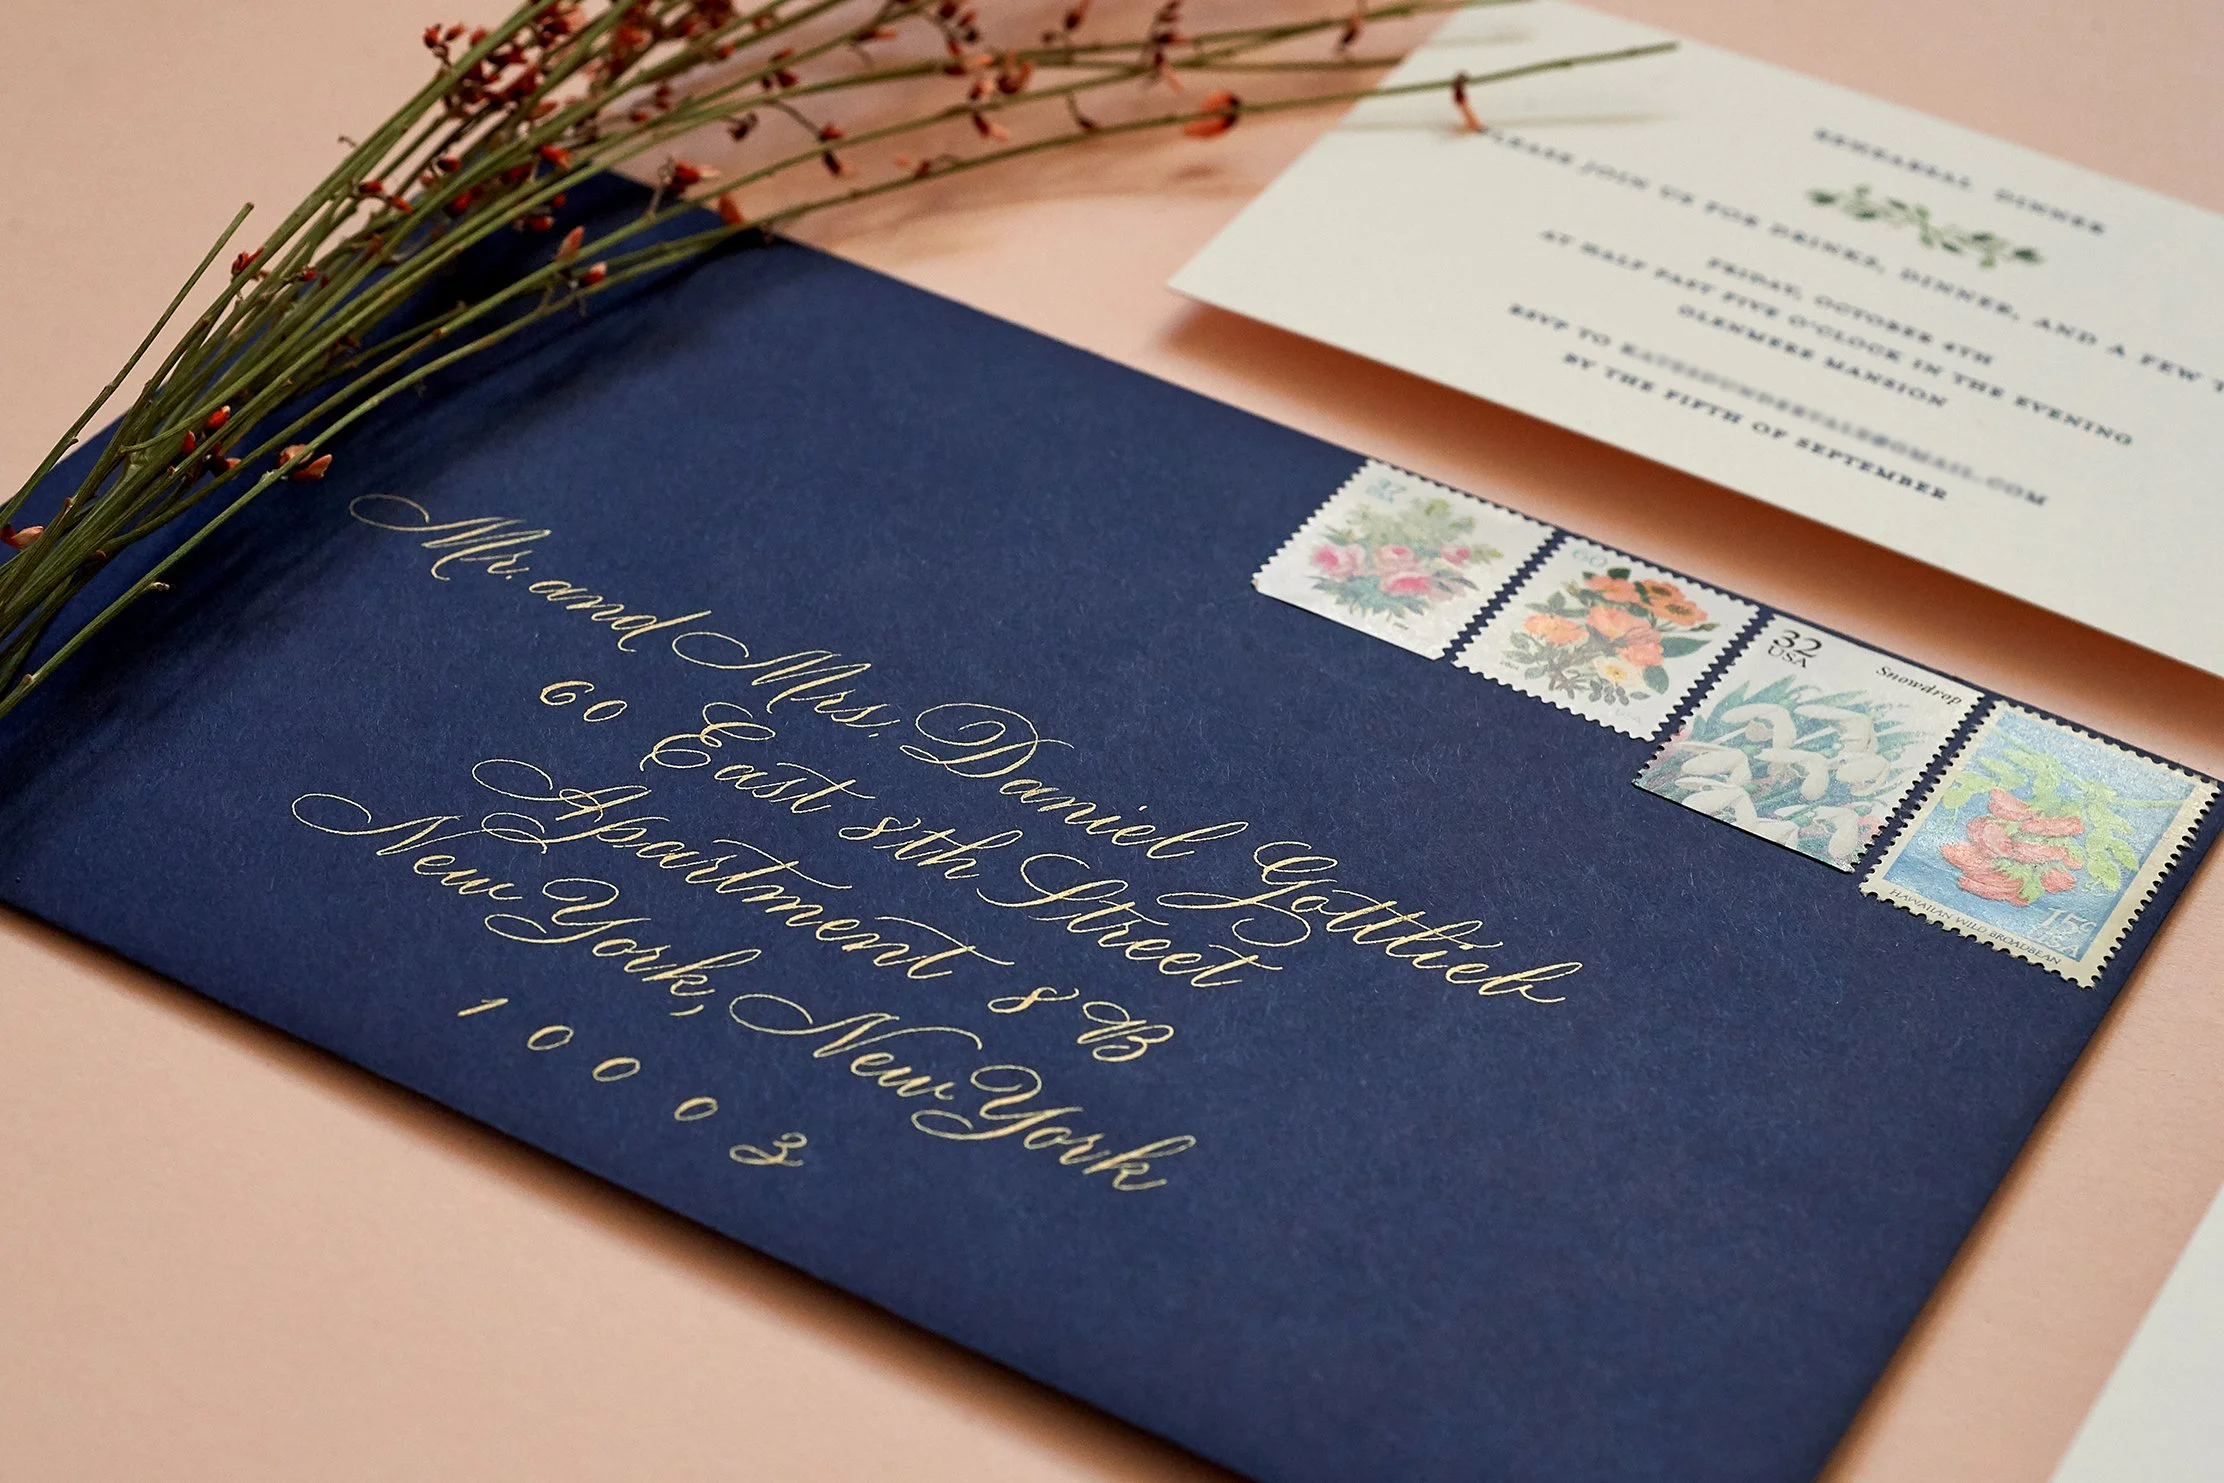 Mr. and Mrs. Daniel Gottlieb
60 East 8th Street
Apartment 8B
New York, New York
10003
37
60
32
USA
Snowdrop
HAWAIIAN WILD BROADBEAN
15c
USA
REHEARSAL DINNER
PLEASE JOIN US FOR DRINKS, DINNER, AND A FEW
FRIDAY, OCTOBER 4TH
AT HALF PAST FIVE O'CLOCK IN THE EVENING
GLENMERE MANSION
RSVP TO
BY THE FIFTH OF SEPTEMBER